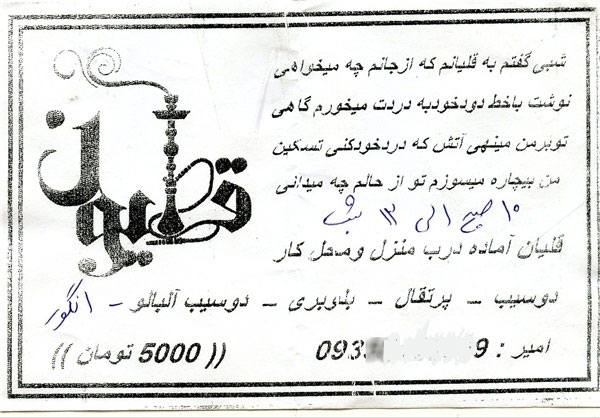 قلیون
شبی گفتم به قلیانم که ازجانم چه میخواهی
نوشت باخط دودخودبه دردت میخورم گاهی
توبرمن مینهی آتش که دردخودکنی تسکین
من بیچاره میسوزم تو از حالم چه میدانی
۱۰ صبح الی ۱۲ شب
قلیان آماده درب منزل ومحل کار
دوسیب - پرتقال - بلوبری - دوسیب آلبالو - انگور
امیر : 093 9 (( 5000 تومان ))